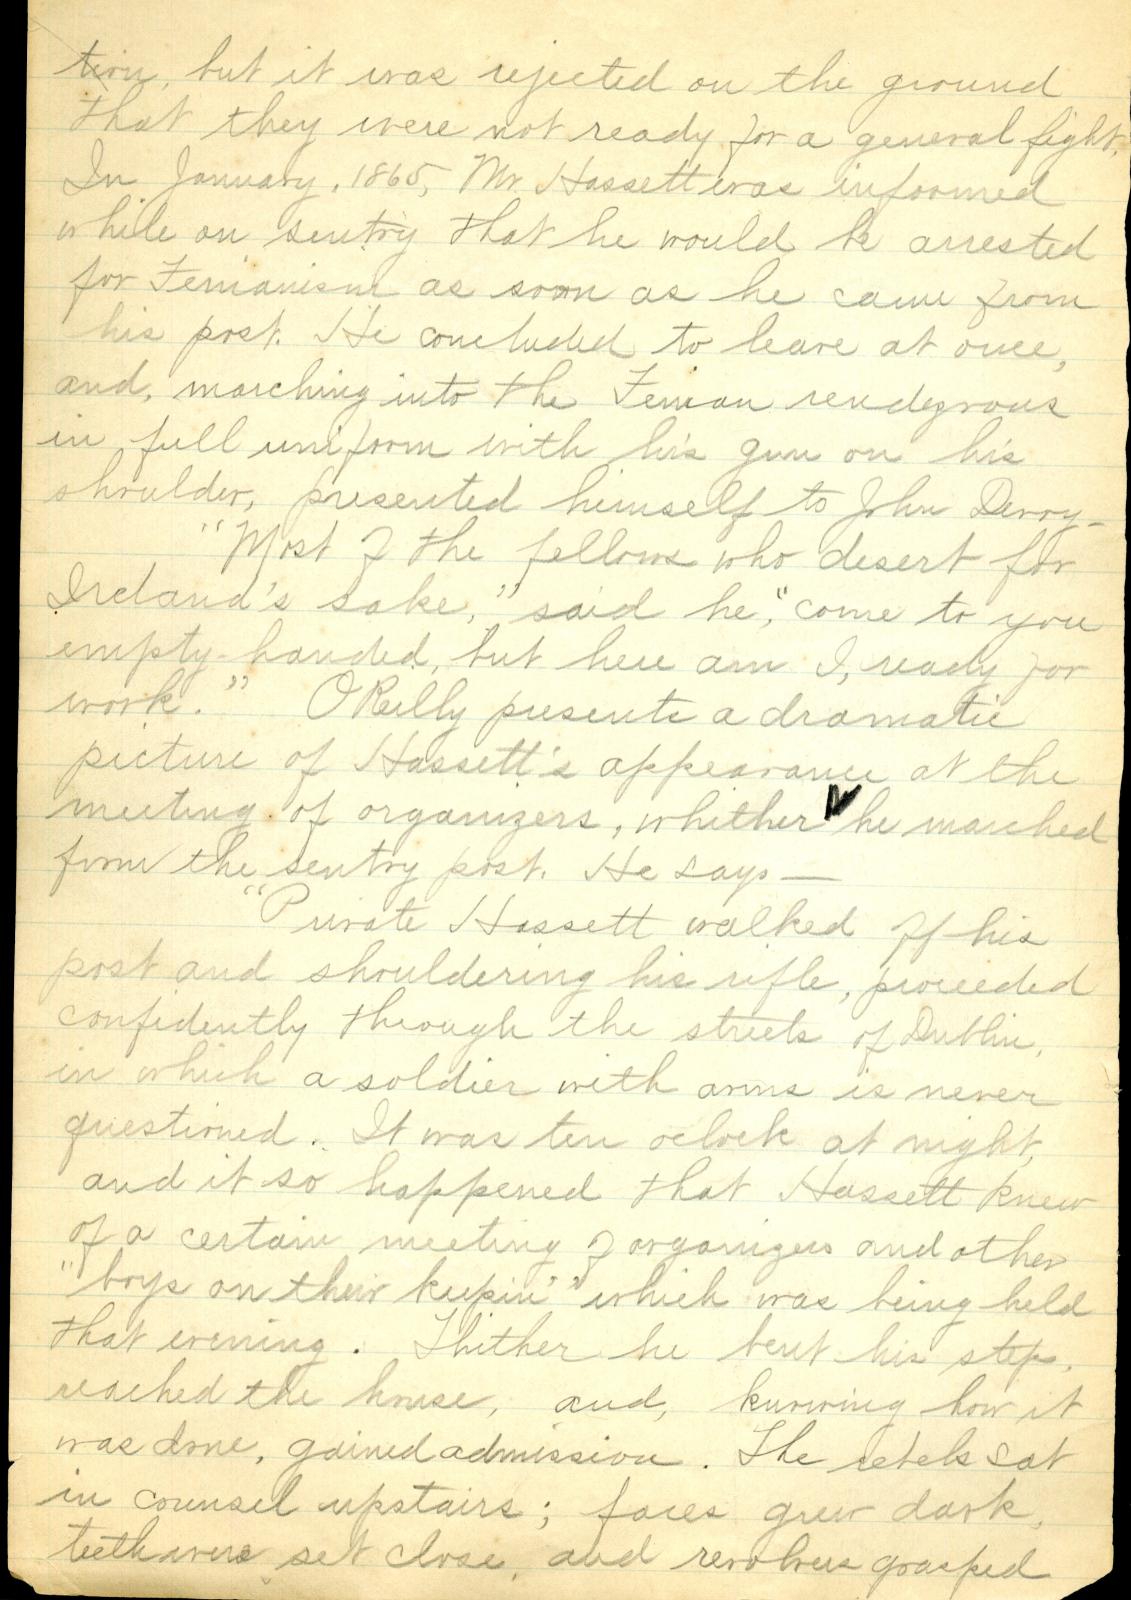 tion, but it was rejected on the ground
that they were not ready for a general fight.
In January, 1865, Mr. Hassett was informed
while on sentry that he would be arrested
for Fenianism as soon as he came from
his post. He concluded to leave at once,
and, marching into the Fenian rendezvous
in full uniform with his gun on his
shoulder, presented himself to John Devoy-
"Most of the fellows who desert for
Ireland's sake," said he, "come to you
empty-handed, but here am I, ready for
work." O'Reilly presents a dramatic
picture of Hassett's appearance at the
meeting of organizers, whither he marched
from the sentry post. He says —
"Private Hassett walked off his
post and shouldering his rifle, proceeded
confidently through the streets of Dublin,
in which a soldier with arms is never
questioned. It was ten oclock at night,
and it so happened that Hassett knew
of a certain meeting of organizers and other
"boys on their keepin'" which was being held
that evening. Thither he bent his step,
reached the house, and, knowing how it
was done, gained admission. The rebels sat
in counsel upstairs; faces grew dark,
teeth were set close, and revolvers grasped